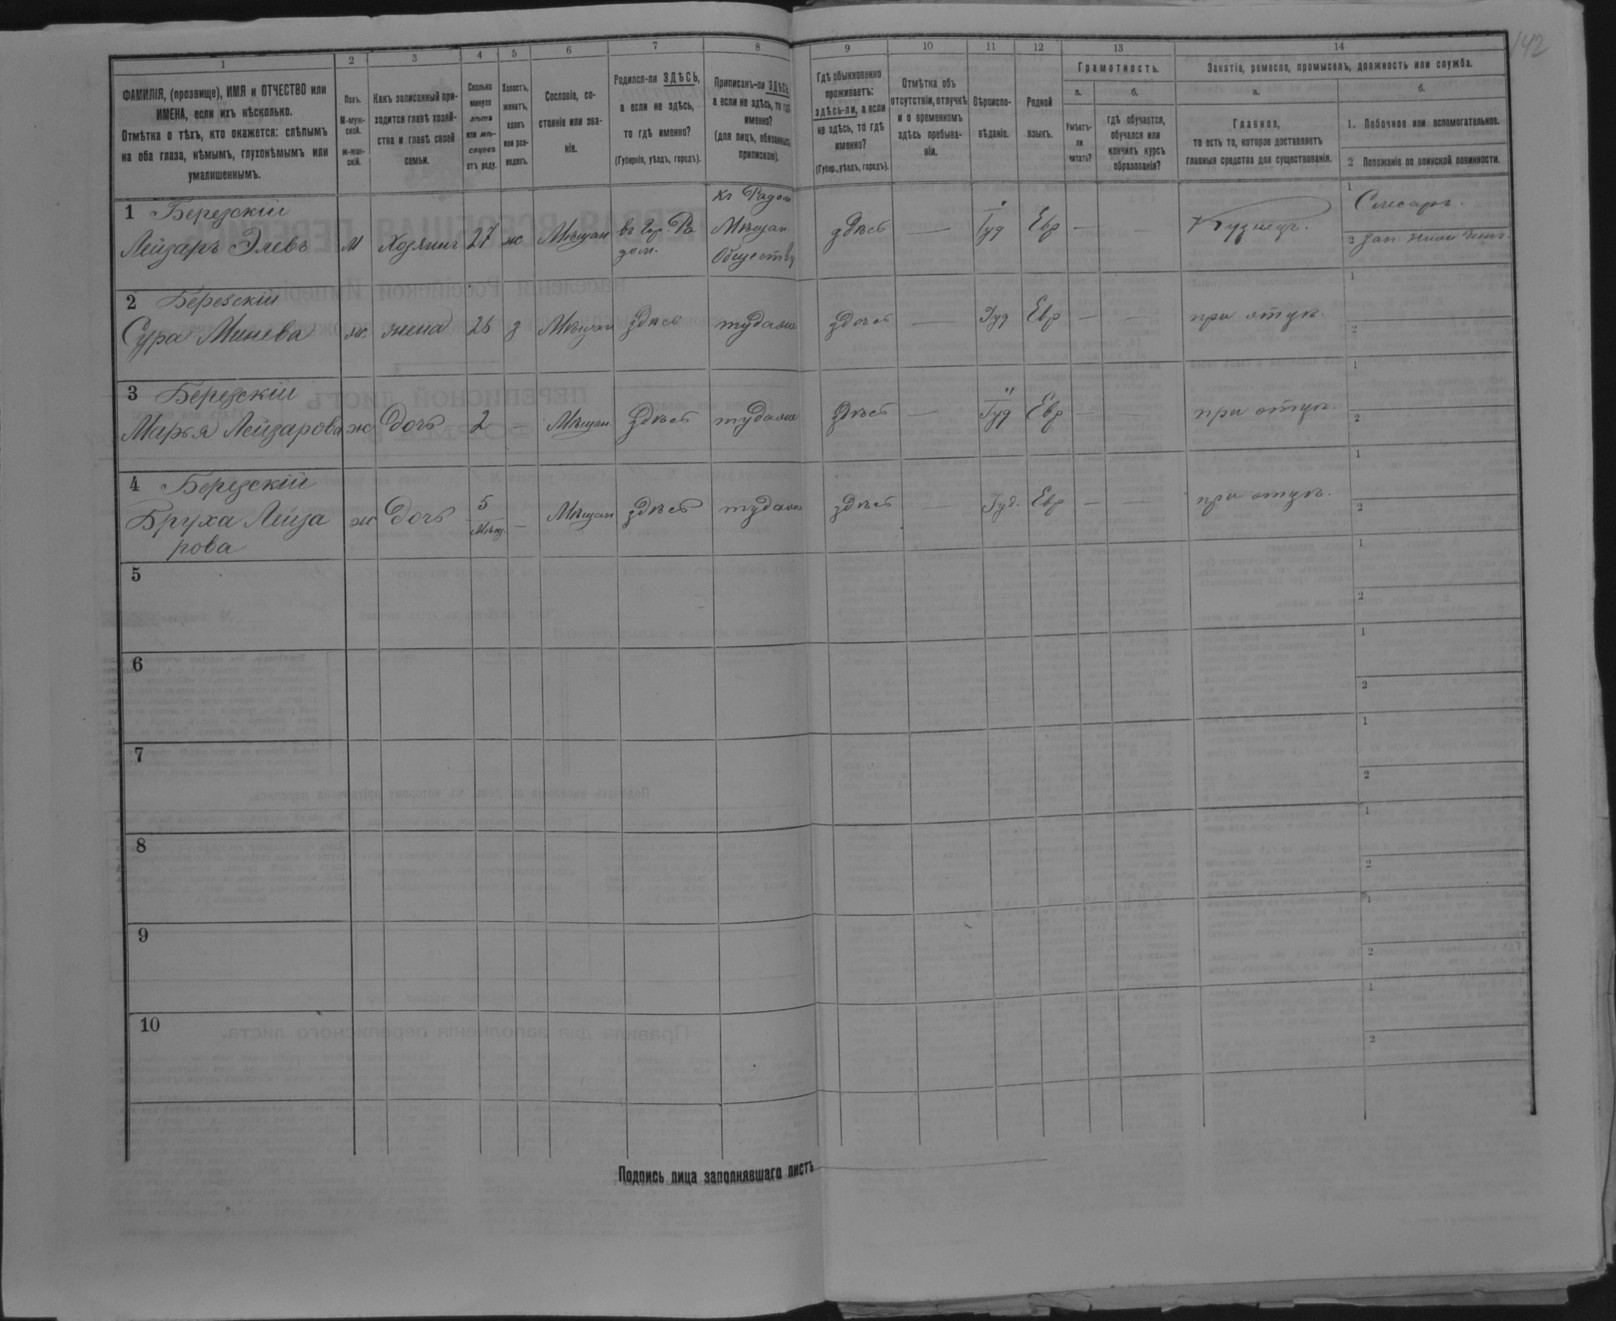 142
1 2 3 4 5 6 7 8 9 10 11 12 13 14
ФАМИЛІЯ, (прозвище), ИМЯ и ОТЧЕСТВО или
ИМЕНА, если ихъ нѣсколько.
Отмѣтка о тѣхъ, кто окажется: слѣпымъ
на оба глаза, нѣмымъ, глухонѣмымъ или
умалишеннымъ.
Полъ.
М-муж-
ской.
ж-жен-
скій.
Какъ записанный при-
ходится главѣ хозяй-
ства и главѣ своей
семьи.
Сколько
минуло
лѣтъ
или мѣ-
сяцевъ
отъ роду.
Холостъ,
женатъ,
вдовъ
или раз-
веденъ.
Сословіе, со-
стояніе или зва-
ніе.
Родился-ли ЗДѢСЬ,
а если не здѣсь,
то гдѣ именно?
(Губернія, уѣздъ, городъ).
Приписанъ-ли ЗДѢСЬ,
а если не здѣсь, то гдѣ
именно?
(для лицъ, обязанныхъ
припискою).
Гдѣ обыкновенно
проживаетъ:
здѣсь-ли, а если
не здѣсь, то гдѣ
именно?
(Губер., уѣздъ, городъ).
Отмѣтка объ
отсутствіи, отлучкѣ
и о временномъ
здѣсь пребыва-
ніи.
Вѣроиспо-
вѣданіе.
Родной
языкъ.
Грамотность.
а.
Умѣетъ-
ли
читать?
б.
гдѣ обучается,
обучался или
кончилъ курсъ
образованія?
Занятіе, ремесло, промыселъ, должность или служба.
а.
Главное,
то есть то, которое доставляетъ
главныя средства для существованія.
б.
1. Побочное или вспомогательное.
2 Положеніе по воинской повинности.
1 Березскій
Лейзаръ Элевъ
М Хозяинъ 27 ж Мѣщан въ Гор. Ра
дом.
Къ Радом
Мѣщан
Обществу
здѣсь — Іуд Евр — — Кузнецъ.
1 Слесаръ.
2
2 Березскій
Сура
ж. жена 25 з Мѣщан здѣсь тудаже здѣсь — Іуд Евр — — при отцѣ.
1
2
3 Березскій
Марья Лейзарова ж дочь 2 — Мѣщан здѣсь тудаже здѣсь — Іуд Евр — — при отцѣ.
1
2
4 Березскій
Бруха Лейза
рова
ж дочь 5
Мѣсяц. — Мѣщан здѣсь тудаже здѣсь — Іуд. Евр — — при отцѣ.
1
2
5
1
2
6
1
2
7
1
2
8
1
2
9
1
2
10
1
2
Подпись лица заполнявшаго листъ